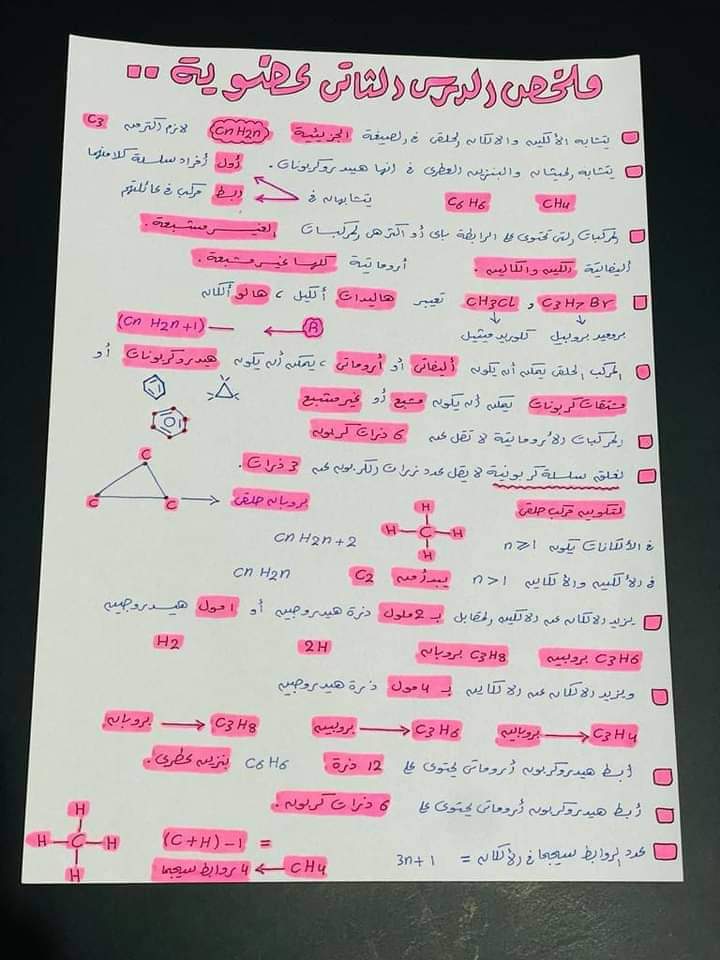 ملخص الدرس الثاني عضوية ..
يتشابه الألكين والالكان الحلقى فى الصيغة الجزيئية CnH2n لازم اكتر من C3
يتشابه الميثان والبنزين العطرى فى انها هيدروكربونات. أول أفراد سلسلة كلامنهما
CH4 C6H6 يتشابهان فى أبسط مركب فى عائلتهم
المركبات التى تحتوى على الرابطة باى أو اكتر هى المركبات الغير مشبعة.
أليفاتية الكين والكاين. أروماتية كلها غير مشبعة.
C3H7Br و CH3CL تعتبر هاليدات ألكيل ، هالو ألكان
بروميد بروبيل كلوريد ميثيل R (CnH2n+1)
المركب الحلقى يمكن أن يكون أليفاتى أو أروماتى ، يمكن أن يكون هيدروكربونات أو
مشتقات كربونات يمكن أن يكون مشبع أو غير مشبع
المركبات الأروماتية لا تقل عن 6 ذرات كربون
لغلق سلسلة كربونية لا يقل عدد ذرات الكربون عن 3 ذرات.
لتكوين مركب حلقى بروبان حلقى
C
C C
H
H C H
H
فى الألكانات يكون n≥1 CnH2n+2
فى الألكين والالكاين n>1 يبدأ من C2 CnH2n
يزيد الالكان عن الالكين المقابل بـ 2 مول ذرة هيدروجين أو 1 مول هيدروجين
C3H6 بروبين C3H8 بروبان 2H H2
ويزيد الالكان عن الالكاين بـ 4 مول ذرة هيدروجين
C3H4 بروباين C3H6 بروبين C3H8 بروبان
أبسط هيدروكربون أروماتى يحتوى على 12 ذرة C6H6 بنزين عطرى.
أبسط هيدروكربون أروماتى يحتوى على 6 ذرات كربون.
عدد الروابط سيجما فى الألكان = 3n+1
= (C+H)-1
CH4 4 روابط سيجما
H
H C H
H